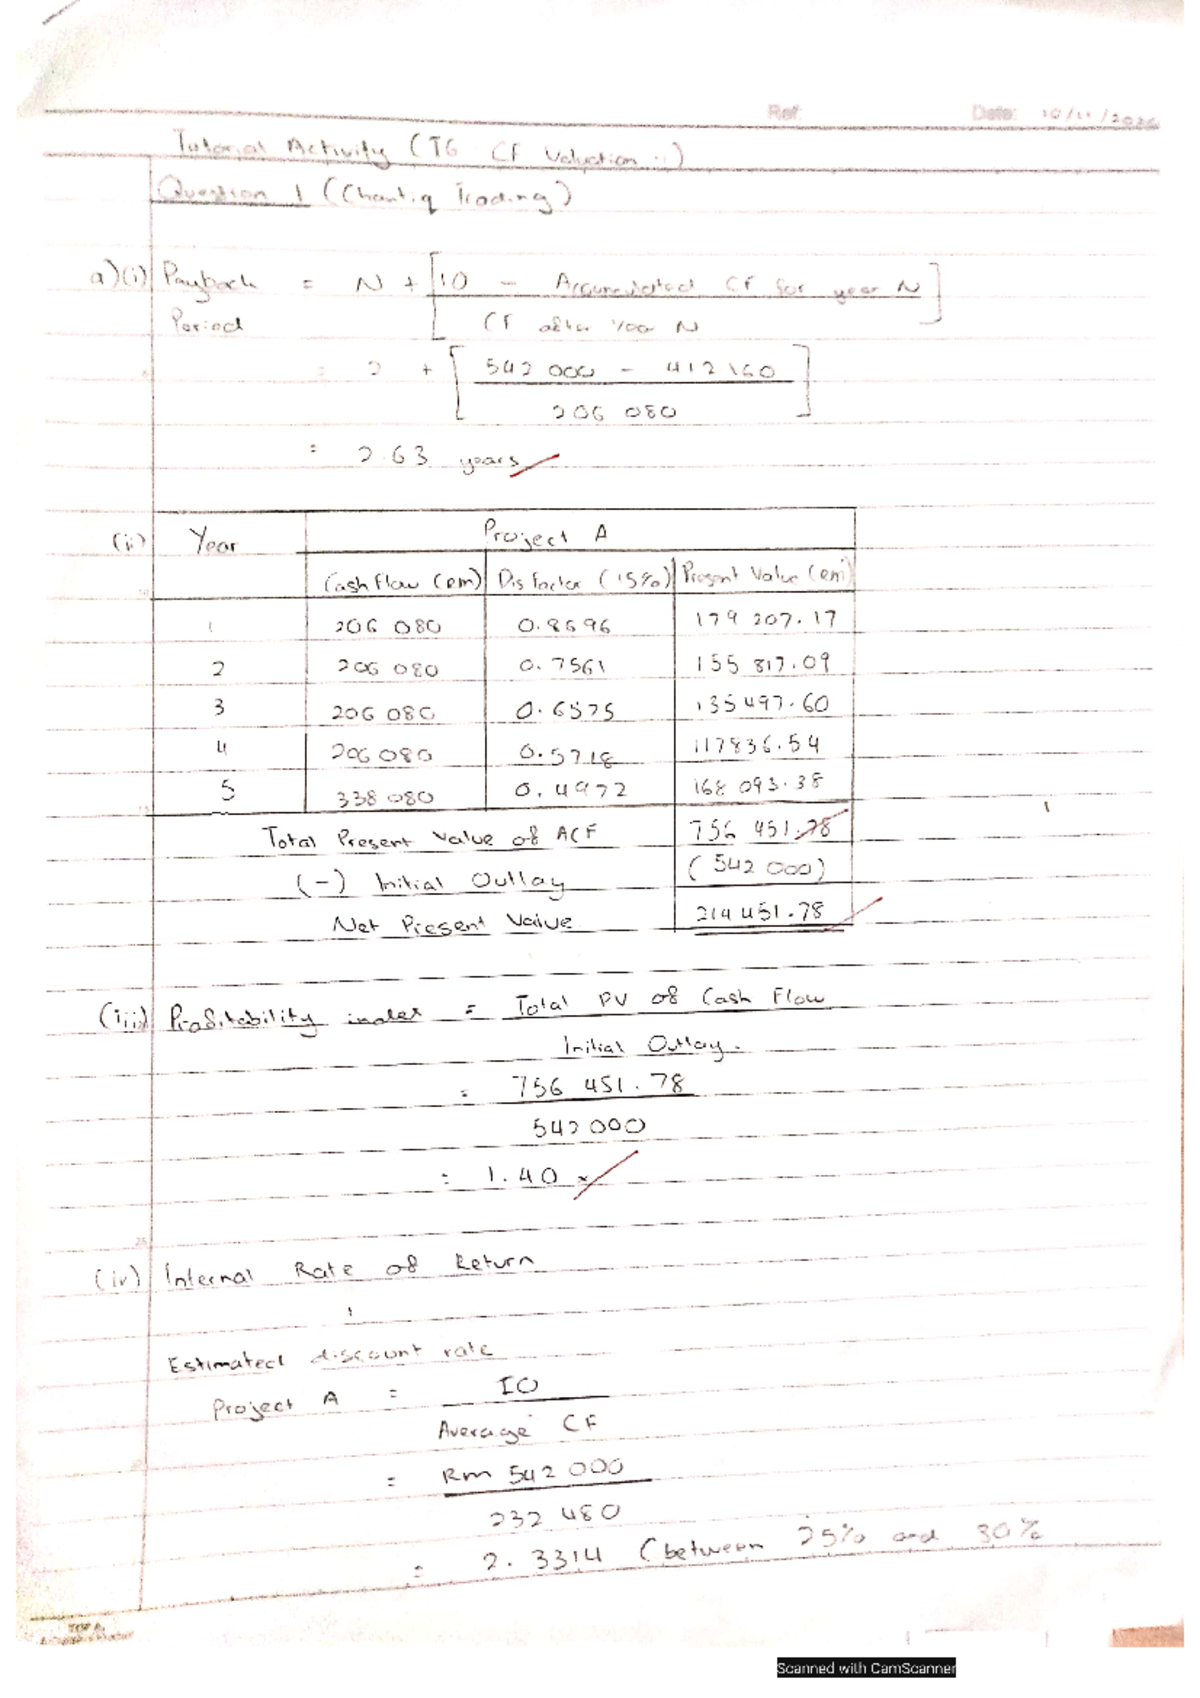 Ref: Date: 10/11/2020
Tutorial Activity (T6 CF Valuation)
Question 1 (Chantiq Trading)
a)(i) Payback Period = N + [IO - Accumulated CF for year N / CF after Year N]
= 2 + [542 000 - 412 160 / 206 080]
= 2.63 years
(ii) Year Project A
Cash Flow (RM) Dis Factor (15%) Present Value (RM)
1 206 080 0.8696 179 207.17
2 206 080 0.7561 155 817.09
3 206 080 0.6575 135 497.60
4 206 080 0.5718 117836.54
5 338 080 0.4972 168 093.38
Total Present Value of ACF 756 451.78
(-) Initial Outlay (542 000)
Net Present Value 214 451.78
(iii) Profitability index = Total PV of Cash Flow
Initial Outlay.
= 756 451.78
542 000
= 1.40 x
(iv) Internal Rate of Return
Estimated discount rate
Project A = IO
Average CF
= Rm 542 000
232 480
= 2.3314 (between 25% and 30%
Scanned with CamScanner